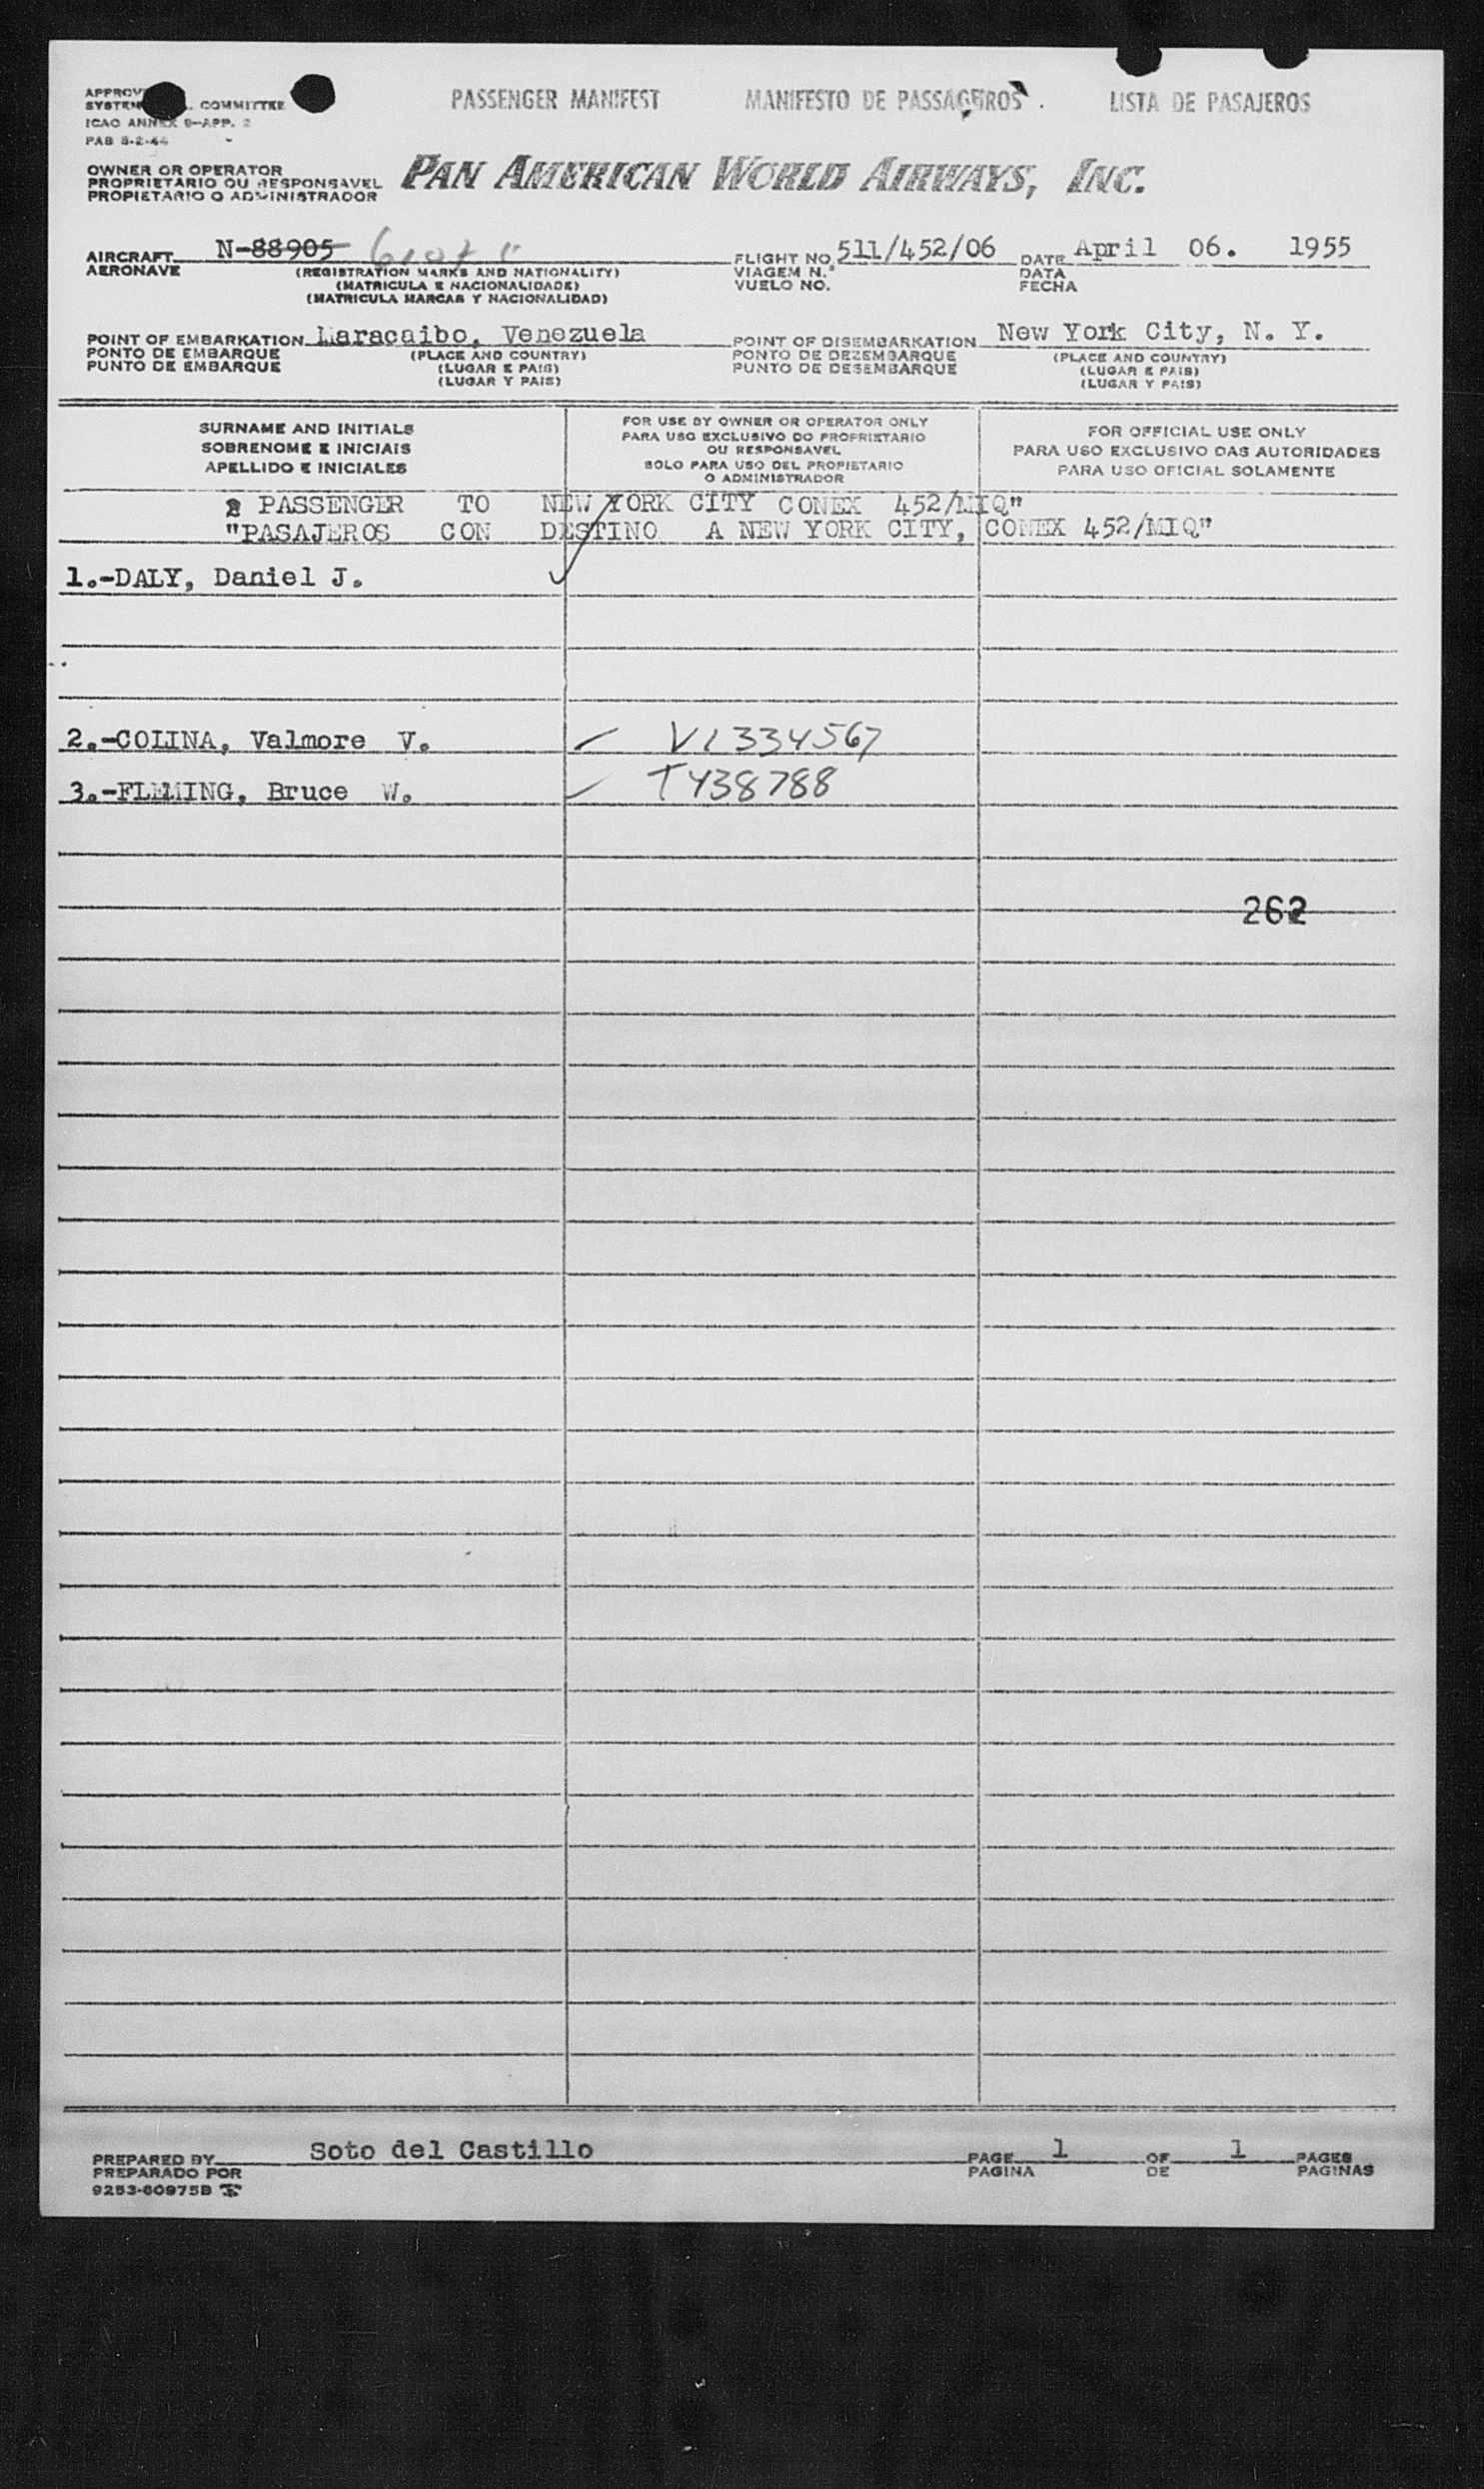 PASSENGER MANIFEST MANIFESTO DE PASSAGEIROS LISTA DE PASAJEROS
COMMITTEE
ICAO ANNEX 9-APP. 2
PAB 8-2-44
OWNER OR OPERATOR
PROPRIETARIO OU RESPONSAVEL
PROPIETARIO O ADMINISTRADOR
PAN AMERICAN WORLD AIRWAYS, INC.
AIRCRAFT N-88905 FLIGHT NO. 511/452/06 DATE April 06. 1955
AERONAVE (REGISTRATION MARKS AND NATIONALITY) VIAGEM N.° DATA
(MATRICULA E NACIONALIDADE) VUELO NO. FECHA
(MATRICULA MARCAS Y NACIONALIDAD)
POINT OF EMBARKATION Maracaibo, Venezuela POINT OF DISEMBARKATION New York City, N. Y.
PONTO DE EMBARQUE (PLACE AND COUNTRY) PONTO DE DEZEMBARQUE (PLACE AND COUNTRY)
PUNTO DE EMBARQUE (LUGAR E PAIS) PUNTO DE DESEMBARQUE (LUGAR E PAIS)
(LUGAR Y PAIS) (LUGAR Y PAIS)
SURNAME AND INITIALS
SOBRENOME E INICIAIS
APELLIDO E INICIALES
FOR USE BY OWNER OR OPERATOR ONLY
PARA USO EXCLUSIVO DO PROPRIETARIO
OU RESPONSAVEL
SOLO PARA USO DEL PROPIETARIO
O ADMINISTRADOR
FOR OFFICIAL USE ONLY
PARA USO EXCLUSIVO DAS AUTORIDADES
PARA USO OFICIAL SOLAMENTE
PASSENGER TO NEW YORK CITY CONEX 452/MIQ"
"PASAJEROS CON DESTINO A NEW YORK CITY, CONEX 452/MIQ"
1.-DALY, Daniel J.
2.-COLINA, Valmore V. V1334567
3.-FLEMING, Bruce W. T438788
262
PREPARED BY Soto del Castillo PAGE 1 OF 1 PAGES
PREPARADO POR PAGINA DE PAGINAS
9253-60975B